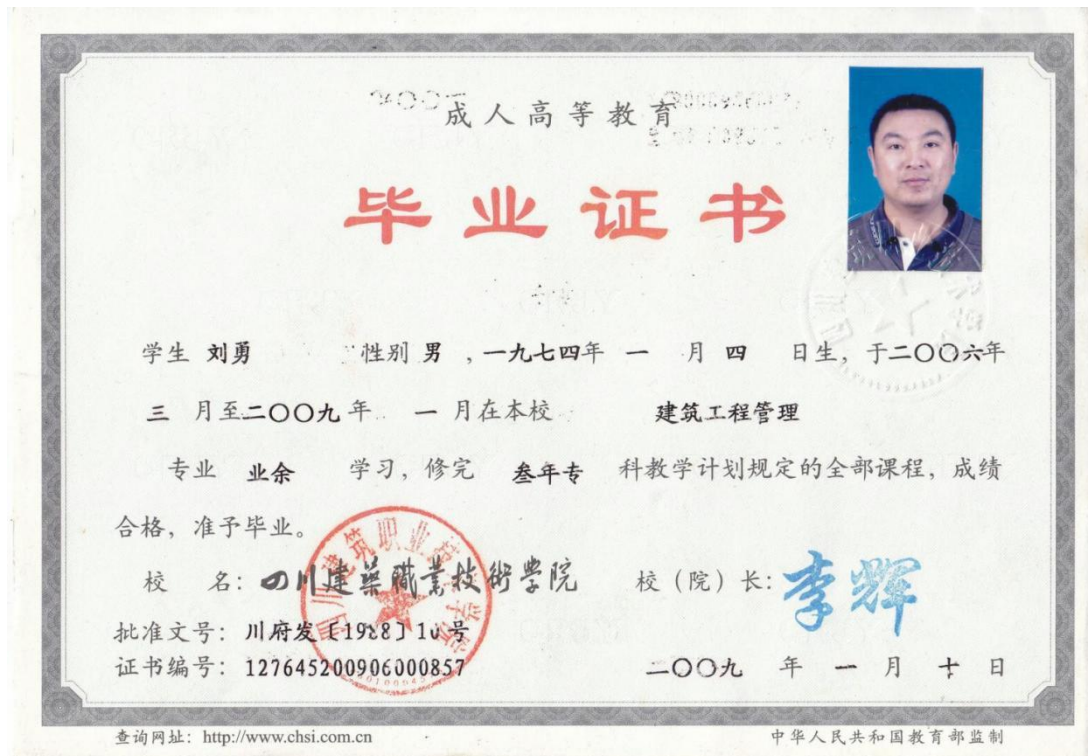 成人高等教育
毕业证书
学生 刘勇 性别 男 ，一九七四年 一 月 四 日生，于二〇〇六年
三 月至二〇〇九年 一 月在本校 建筑工程管理
专业 业余 学习，修完 叁年专 科教学计划规定的全部课程，成绩
合格，准予毕业。
校 名：四川建築職業技術學院 校（院）长：李辉
批准文号：川府发〔1988〕10号
证书编号：127645200906000857 二〇〇九 年 一 月 十 日
查询网址：http://www.chsi.com.cn 中华人民共和国教育部监制